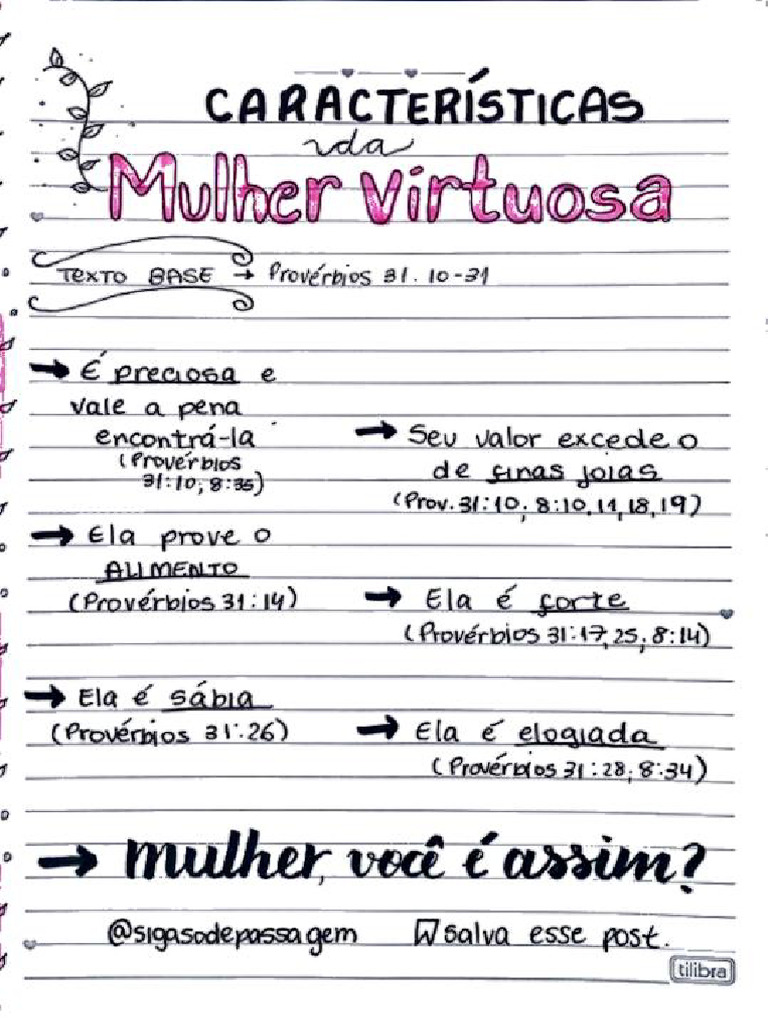 CARACTERÍSTICAS
da
Mulher Virtuosa
TEXTO BASE → Provérbios 31.10-31
→ É preciosa e
vale a pena
encontrá-la
(Provérbios
31:10; 8:35)
→ Seu valor excede o
de finas joias
(Prov. 31:10; 8:10,11,18,19)
→ Ela prove o
ALIMENTO
(Provérbios 31:14)
→ Ela é forte
(Provérbios 31:17,25; 8:14)
→ Ela é sábia
(Provérbios 31:26)
→ Ela é elogiada
(Provérbios 31:28; 8:34)
→ mulher, você é assim?
@sigasodepassagem
salva esse post.
tilibra